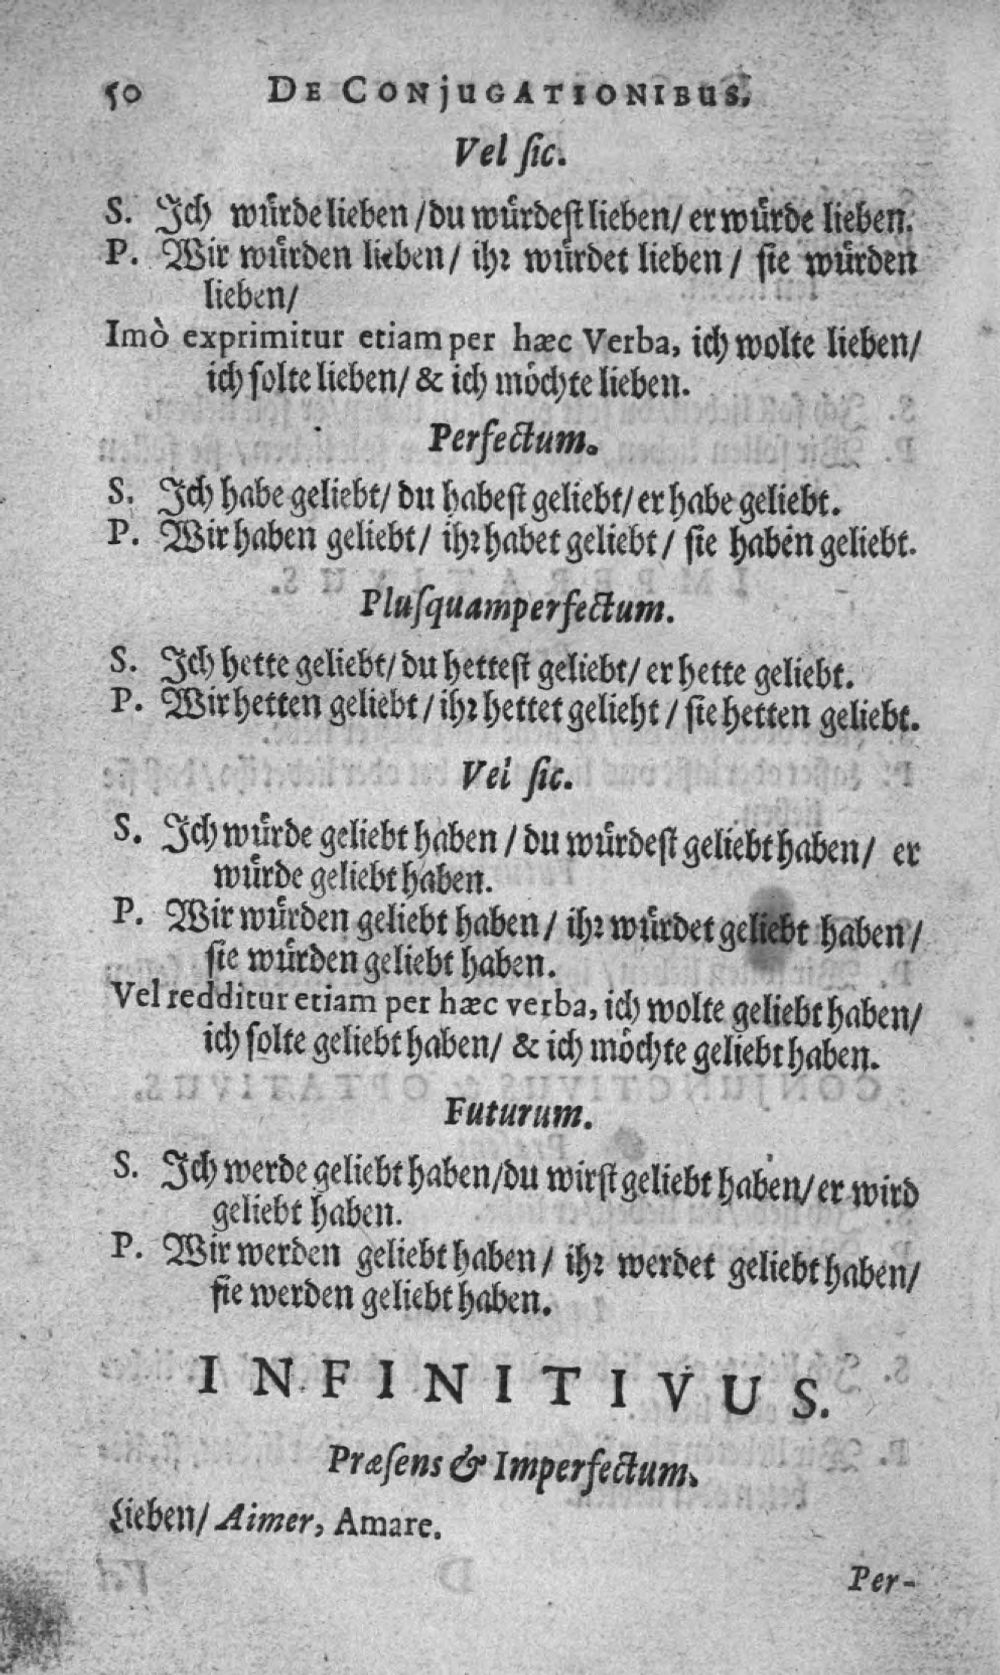 50 DE CONjUGATIONIBUS.
Vel ſic.
S. Ich wuͤrde lieben / du wuͤrdeſt lieben/ er wuͤrde lieben.
P. Wir wuͤrden lieben/ ihr wuͤrdet lieben / ſie wuͤrden
lieben/
Imò exprimitur etiam per hæc Verba, ich wolte lieben/
ich ſolte lieben/ & ich moͤchte lieben.
Perfectum.
S. Ich habe geliebt/ du habeſt geliebt/ er habe geliebt.
P. Wir haben geliebt/ ihr habet geliebt / ſie haben geliebt.
Pluſquamperfectum.
S. Ich hette geliebt/ du hetteſt geliebt/ er hette geliebt.
P. Wir hetten geliebt / ihr hettet gelieht / ſie hetten geliebt.
Vel ſic.
S. Ich wuͤrde geliebt haben / du wuͤrdeſt geliebt haben/ er
wuͤrde geliebt haben.
P. Wir wuͤrden geliebt haben / ihr wuͤrdet geliebt haben /
ſie wuͤrden geliebt haben.
Vel redditur etiam per hæc verba, ich wolte geliebt haben/
ich ſolte geliebt haben/ & ich moͤchte geliebt haben.
Futurum.
S. Ich werde geliebt haben/du wirſt geliebt haben/ er wird
geliebt haben.
P. Wir werden geliebt haben / ihr werdet geliebt haben/
ſie werden geliebt haben.
INFINITIVUS.
Præſens & Imperfectum.
Lieben/ Aimer, Amare.
Per-